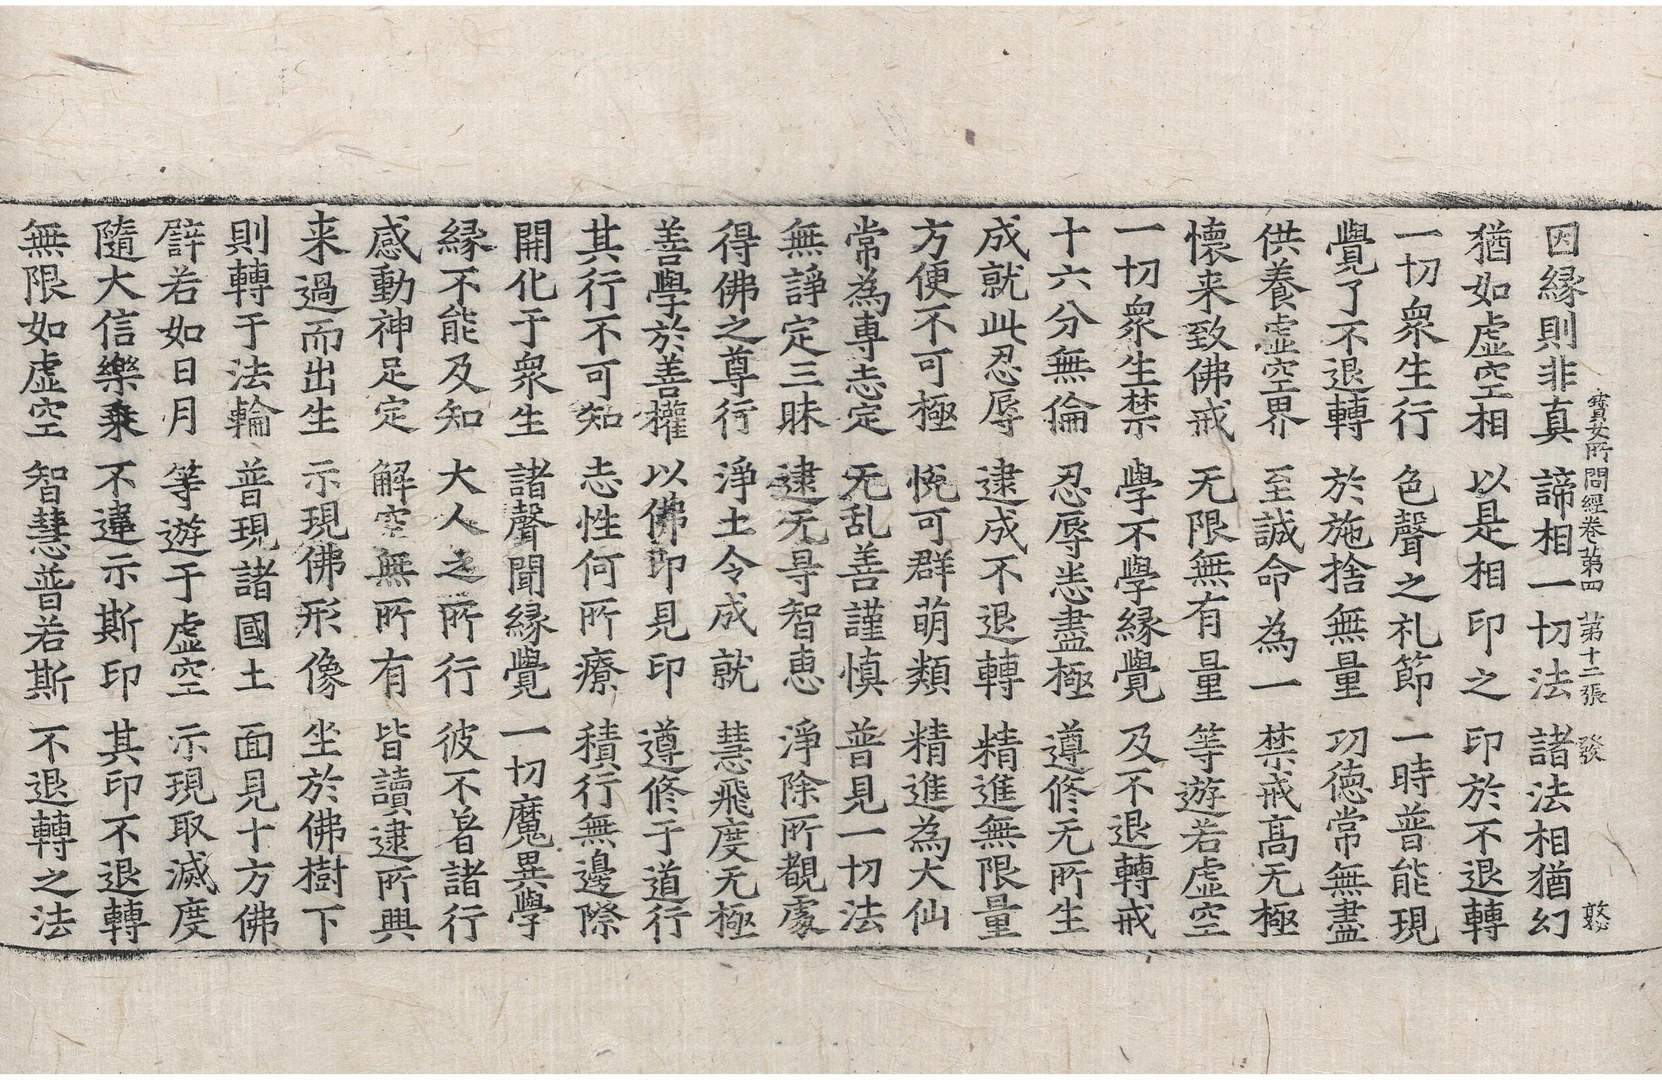 寶女所問經卷第四 第十二張 發 敦
因緣則非真 諦相一切法 諸法相猶幻
猶如虛空相 以是相印之 印於不退轉
一切衆生行 色聲之礼節 一時普能現
覺了不退轉 於施捨無量 功德常無盡
供養虛空界 至誠命為一 禁戒高无極
懷来致佛戒 无限無有量 等遊若虛空
一切衆生禁 學不學緣覺 及不退轉戒
十六分無倫 忍辱恙盡極 遵修无所生
成就此忍辱 逮成不退轉 精進無限量
方便不可極 悅可群萌類 精進為大仙
常為專志定 无乱善謹慎 普見一切法
無諍定三昧 逮无㝵智恵 淨除所覩處
得佛之尊行 淨土令成就 慧飛度无極
善學於善權 以佛印見印 遵修于道行
其行不可知 志性何所療 積行無邊際
開化于衆生 諸聲聞緣覺 一切魔異學
緣不能及知 大人之所行 彼不着諸行
感動神足定 解空無所有 皆讀逮所興
来過而出生 示現佛形像 坐於佛樹下
則轉于法輪 普現諸國土 面見十方佛
譬若如日月 等遊于虛空 示現取滅度
隨大信樂乗 不違示斯印 其印不退轉
無限如虛空 智慧普若斯 不退轉之法